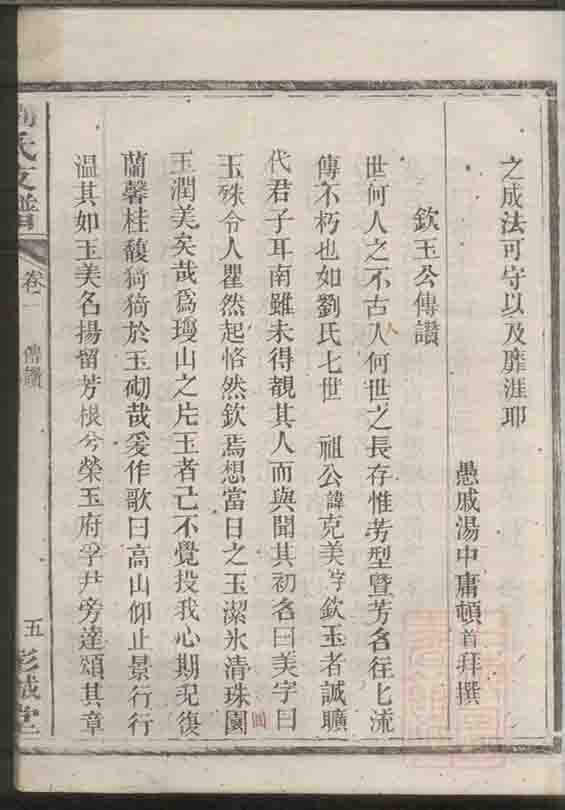 之成法可守以及靡涯耶
愚戚湯中庸頓首拜撰
欽玉公傳讚
世何人之不古人何世之長存惟芳型暨芳名往七流
傳不朽也如劉氏七世 祖公諱克美字欽玉者誠曠
代君子耳南雖未得覩其人而與聞其初名曰美字曰
玉殊令人瞿然起恪然欽焉想當日之玉潔氷清珠圓
圓
玉潤美矣哉爲瓊山之片玉者己不覺投我心期況復
蘭馨桂馥猗猗於玉砌哉爰作歌曰高山仰止景行行
温其如玉美名揚留芳根兮榮玉府孚尹旁達頌其章
氏支譜
卷
傳讚
五
彭城堂